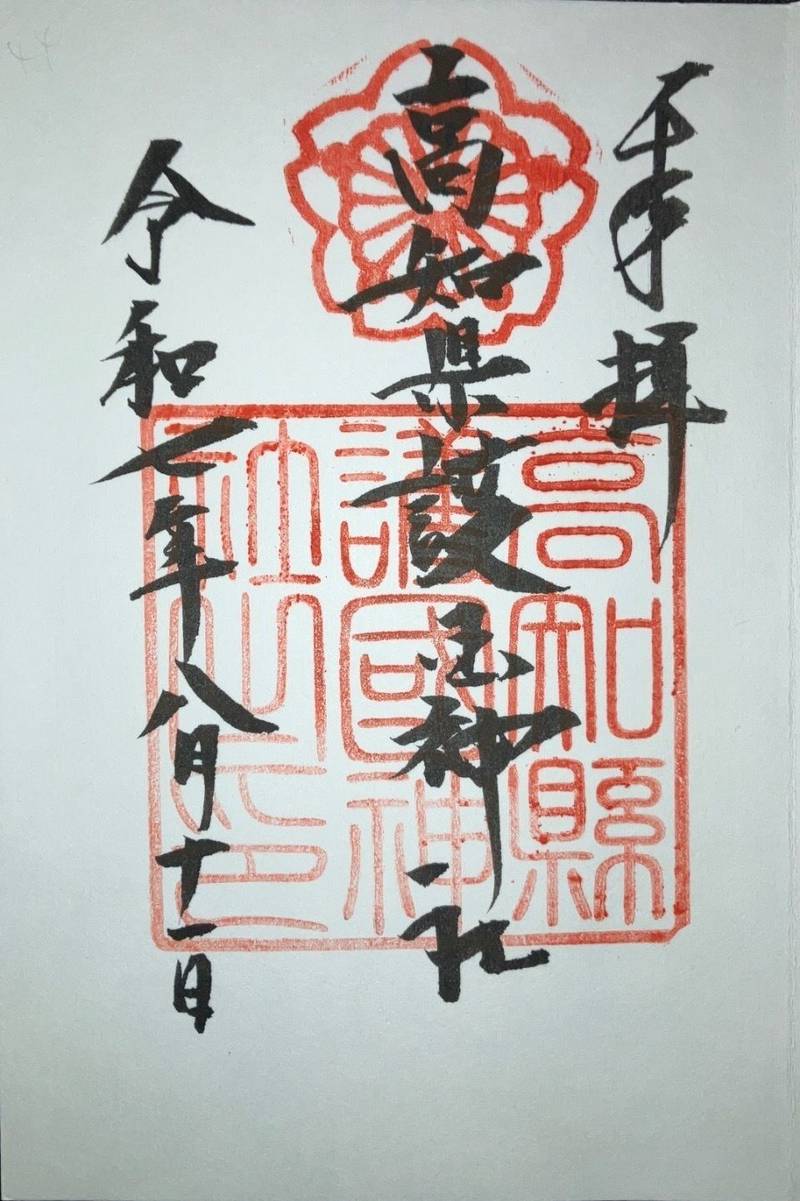 奉拝
高知県護国神社
令和七年八月十一日
高知縣
護國神
社之印